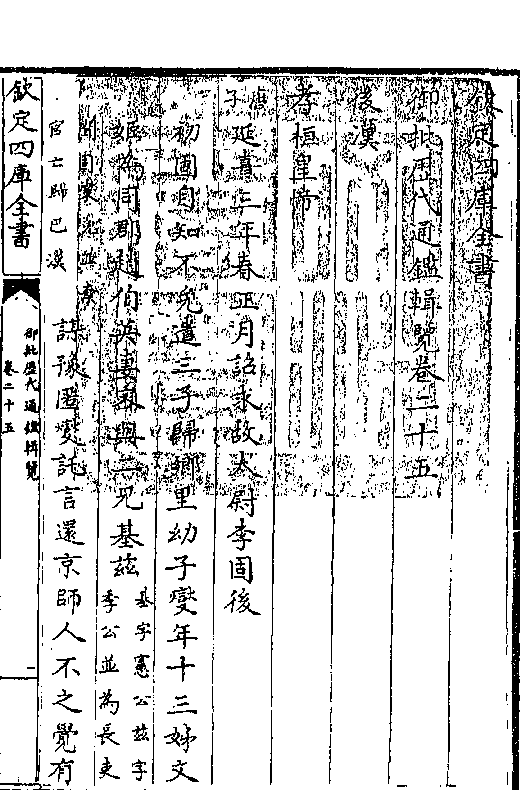 欽定四庫全書
御批歷代通鑑輯覽卷二十五
後漢
孝桓皇帝
庚子延熹三年春正月詔求故太尉李固後
初固自知不免遣三子歸鄉里幼子燮年十三姊文
姬為同郡趙伯英妻與二兄基茲
基字憲公茲字
季公並為長吏
聞固
官亡歸巴漢
謀豫匿燮託言還京師人不之覺有
欽定四庫全書
御批歷代通鑑輯覽
卷二十五
一